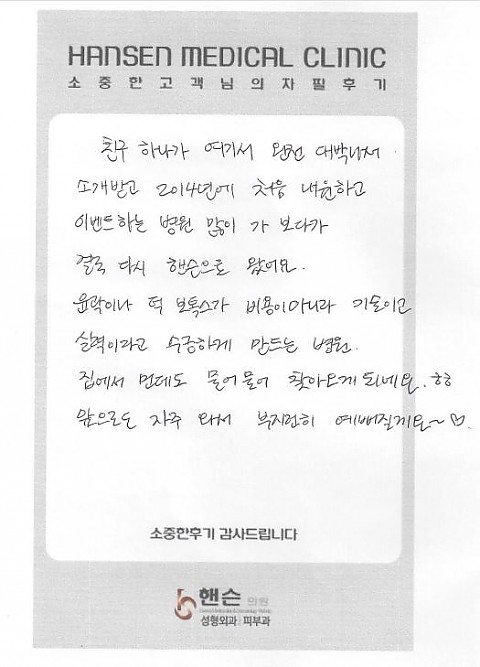 HANSEN MEDICAL CLINIC
소중한고객님의자필후기
친구 하나가 여기서 완전 대박나서
소개받고 2014년에 처음 내원하고
이벤트하는 병원 많이 가 보다가
결국 다시 핸슨으로 왔어요.
윤곽이나 턱 보톡스가 비용이아니라 기술이고
실력이라고 수긍하게 만드는 병원.
집에서 먼데도 물어물어 찾아오게 되네요. ㅎㅎ
앞으로도 자주 와서 부지런히 예뻐질게요~♡.
소중한후기 감사드립니다
핸슨 의원
성형외과 | 피부과